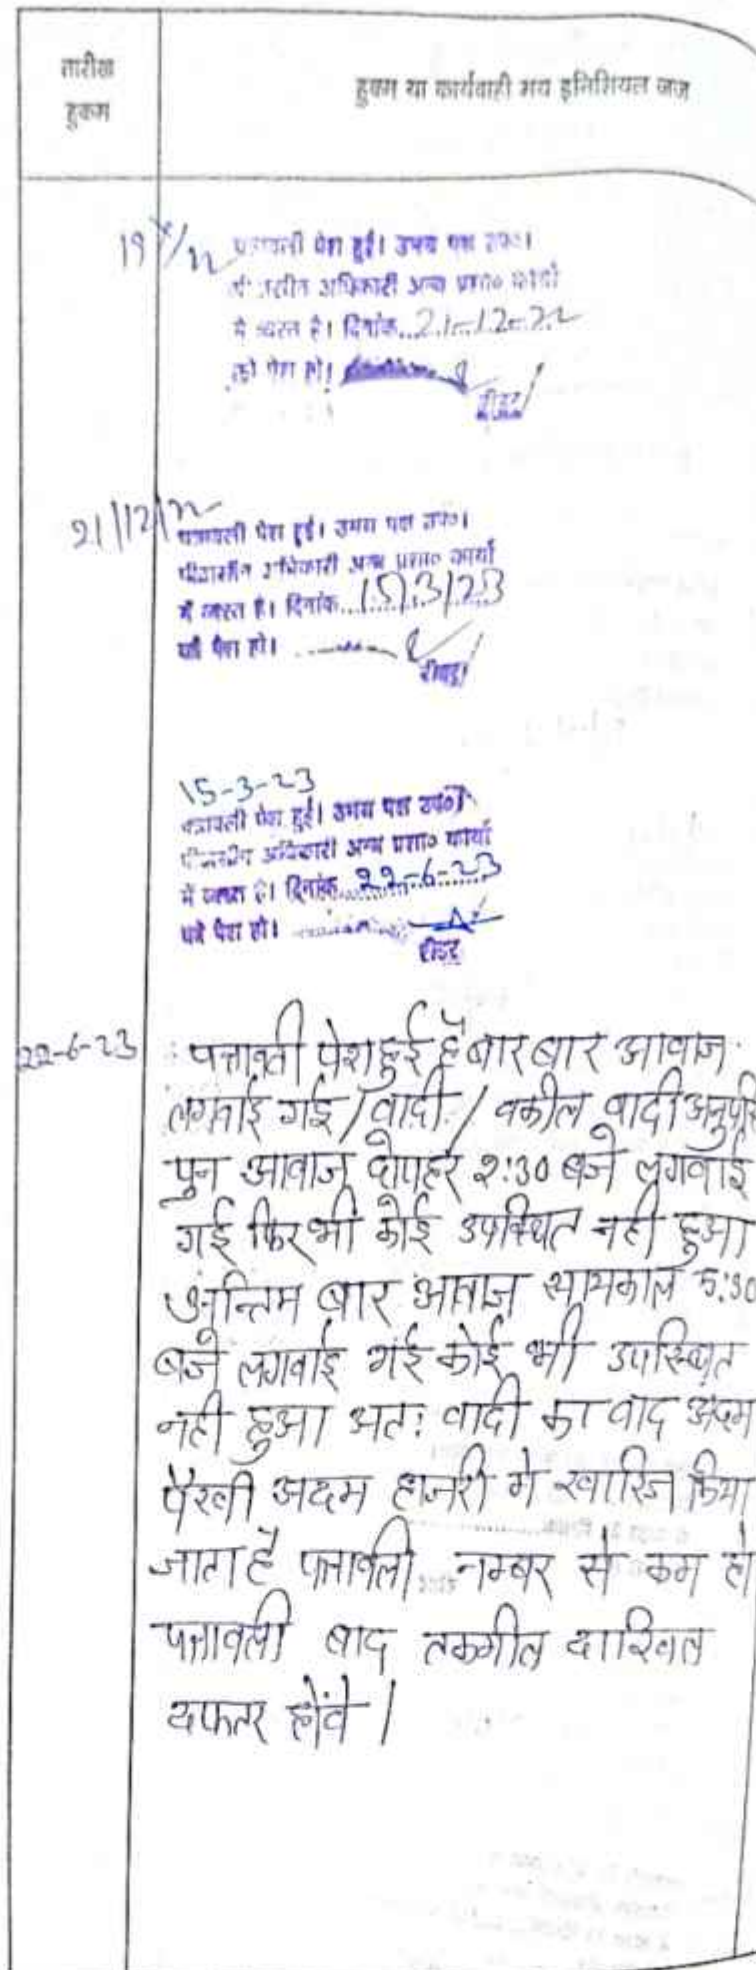 तारीख
हुकम
हुक्म या कार्यवाही मय इनिशियल जज
19
पत्रावली पेश हुई। उभय पक्ष उप०।
पीठासीन अधिकारी अन्य प्रशा० कार्यो
मे व्यस्त है। दिनांक...21-12-22
को पेश हो।
रीडर
21/12/22
पत्रावली पेश हुई। उभय पक्ष उप०।
पीठासीन अधिकारी अन्य प्रशा० कार्यो
में व्यस्त है। दिनांक...15/3/23
को पेश हो।
रीडर
15-3-23
पत्रावली पेश हुई। उभय पक्ष उप०।
पीठासीन अधिकारी अन्य प्रशा० कार्यो
में व्यस्त है। दिनांक 22-6-23
को पेश हो।
रीडर
22-6-23
पत्रावली पेश हुई है बार बार आवाज
लगवाई गई / वादी / वकील वादी अनुपस्थि
पुन आवाज दोपहर 2:30 बजे लगवाई
गई फिर भी कोई उपस्थित नही हुआ
अन्तिम बार आवाज सायकाल 5:30
बजे लगवाई गई कोई भी उपस्थित
नही हुआ अतः वादी का वाद अदम
पैरवी अदम हाजरी मे खारिज किया
जाता है पत्रावली नम्बर से कम हो
पत्रावली बाद तकमील दाखिल
दफतर होंवे।